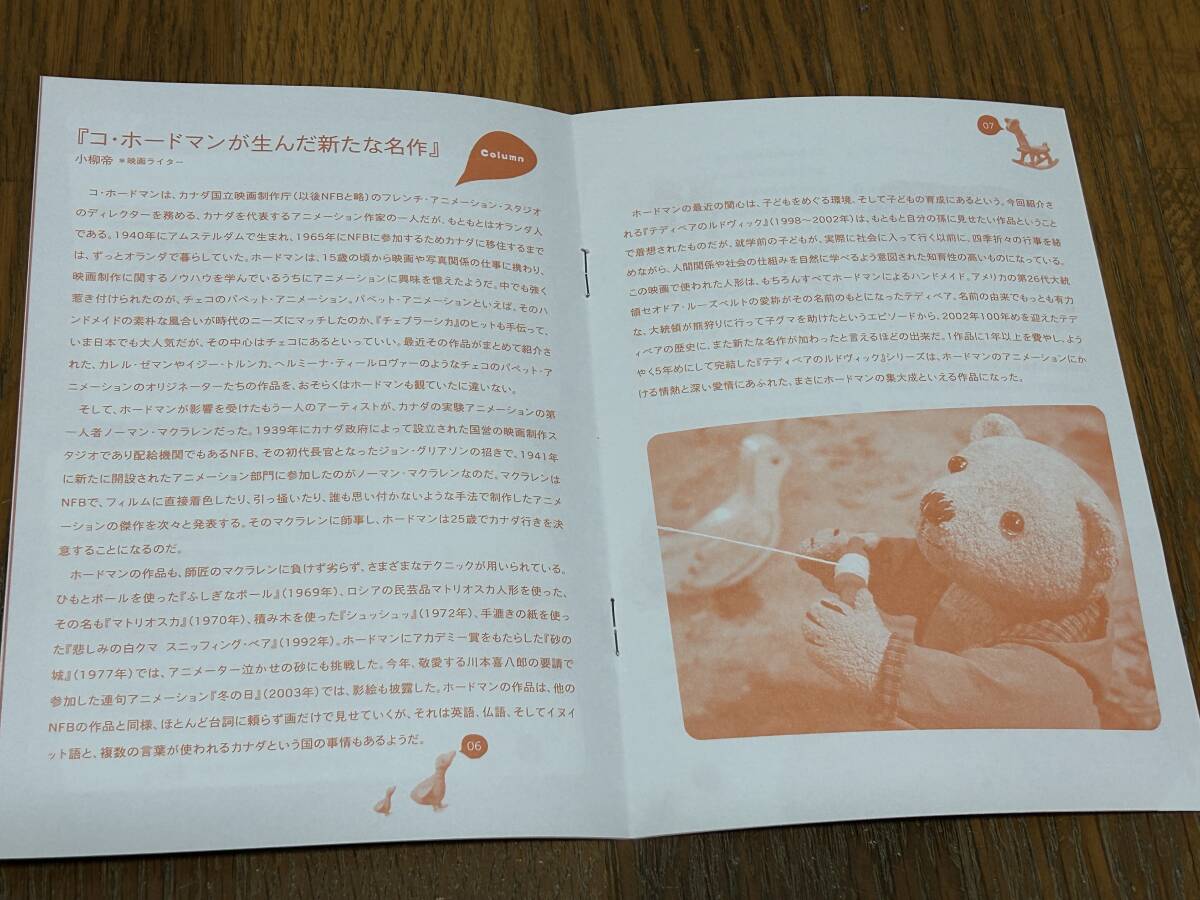 『コ・ホードマンが生んだ新たな名作』
小柳帝 *映画ライター
Column
コ・ホードマンは、カナダ国立映画制作庁(以後NFBと略)のフレンチ・アニメーション・スタジオ
のディレクターを務める、カナダを代表するアニメーション作家の一人だが、もともとはオランダ人
である。1940年にアムステルダムで生まれ、1965年にNFBに参加するためカナダに移住するまで
は、ずっとオランダで暮らしていた。ホードマンは、15歳の頃から映画や写真関係の仕事に携わり、
映画制作に関するノウハウを学んでいるうちにアニメーションに興味を憶えたようだ。中でも強く
惹き付けられたのが、チェコのパペット・アニメーション。パペット・アニメーションといえば、そのハ
ンドメイドの素朴な風合いが時代のニーズにマッチしたのか、『チェブラーシカ』のヒットも手伝って、
いま日本でも大人気だが、その中心はチェコにあるといっていい。最近その作品がまとめて紹介さ
れた、カレル・ゼマンやイジー・トルンカ、ヘルミーナ・ティールロヴァーのようなチェコのパペット・ア
ニメーションのオリジネーターたちの作品を、おそらくはホードマンも観ていたに違いない。
そして、ホードマンが影響を受けたもう一人のアーティストが、カナダの実験アニメーションの第
一人者ノーマン・マクラレンだった。1939年にカナダ政府によって設立された国営の映画制作ス
タジオであり配給機関でもあるNFB、その初代長官となったジョン・グリアソンの招きで、1941年
に新たに開設されたアニメーション部門に参加したのがノーマン・マクラレンなのだ。マクラレンは
NFBで、フィルムに直接着色したり、引っ掻いたり、誰も思い付かないような手法で制作したアニメ
ーションの傑作を次々と発表する。そのマクラレンに師事し、ホードマンは25歳でカナダ行きを決
意することになるのだ。
ホードマンの作品も、師匠のマクラレンに負けず劣らず、さまざまなテクニックが用いられている。
ひもとボールを使った『ふしぎなボール』(1969年)、ロシアの民芸品マトリオスカ人形を使った、
その名も『マトリオスカ』(1970年)、積み木を使った『シュッシュッ』(1972年)、手漉きの紙を使っ
た『悲しみの白クマ スニッフィング・ベア』(1992年)。ホードマンにアカデミー賞をもたらした『砂の
城』(1977年)では、アニメーター泣かせの砂にも挑戦した。今年、敬愛する川本喜八郎の要請で
参加した連句アニメーション『冬の日』(2003年)では、影絵も披露した。ホードマンの作品は、他の
NFBの作品と同様、ほとんど台詞に頼らず画だけで見せていくが、それは英語、仏語、そしてイヌイ
ット語と、複数の言葉が使われるカナダという国の事情もあるようだ。
06
07
ホードマンの最近の関心は、子どもをめぐる環境、そして子どもの育成にあるという。今回紹介さ
れる『テディベアのルドヴィック』(1998〜2002年)は、もともと自分の孫に見せたい作品ということ
で着想されたものだが、就学前の子どもが、実際に社会に入って行く以前に、四季折々の行事を絡
めながら、人間関係や社会の仕組みを自然に学べるよう意図された知育性の高いものになっている。
この映画で使われた人形は、もちろんすべてホードマンによるハンドメイド。アメリカの第26代大統
領セオドア・ルーズベルトの愛称がその名前のもとになったテディベア。名前の由来でもっとも有力
な、大統領が熊狩りに行って子グマを助けたというエピソードから、2002年100年めを迎えたテデ
ィベアの歴史に、また新たな名作が加わったと言えるほどの出来だ。1作品に1年以上を費やし、よう
やく5年めにして完結した『テディベアのルドヴィック』シリーズは、ホードマンのアニメーションにか
ける情熱と深い愛情にあふれた、まさにホードマンの集大成といえる作品になった。